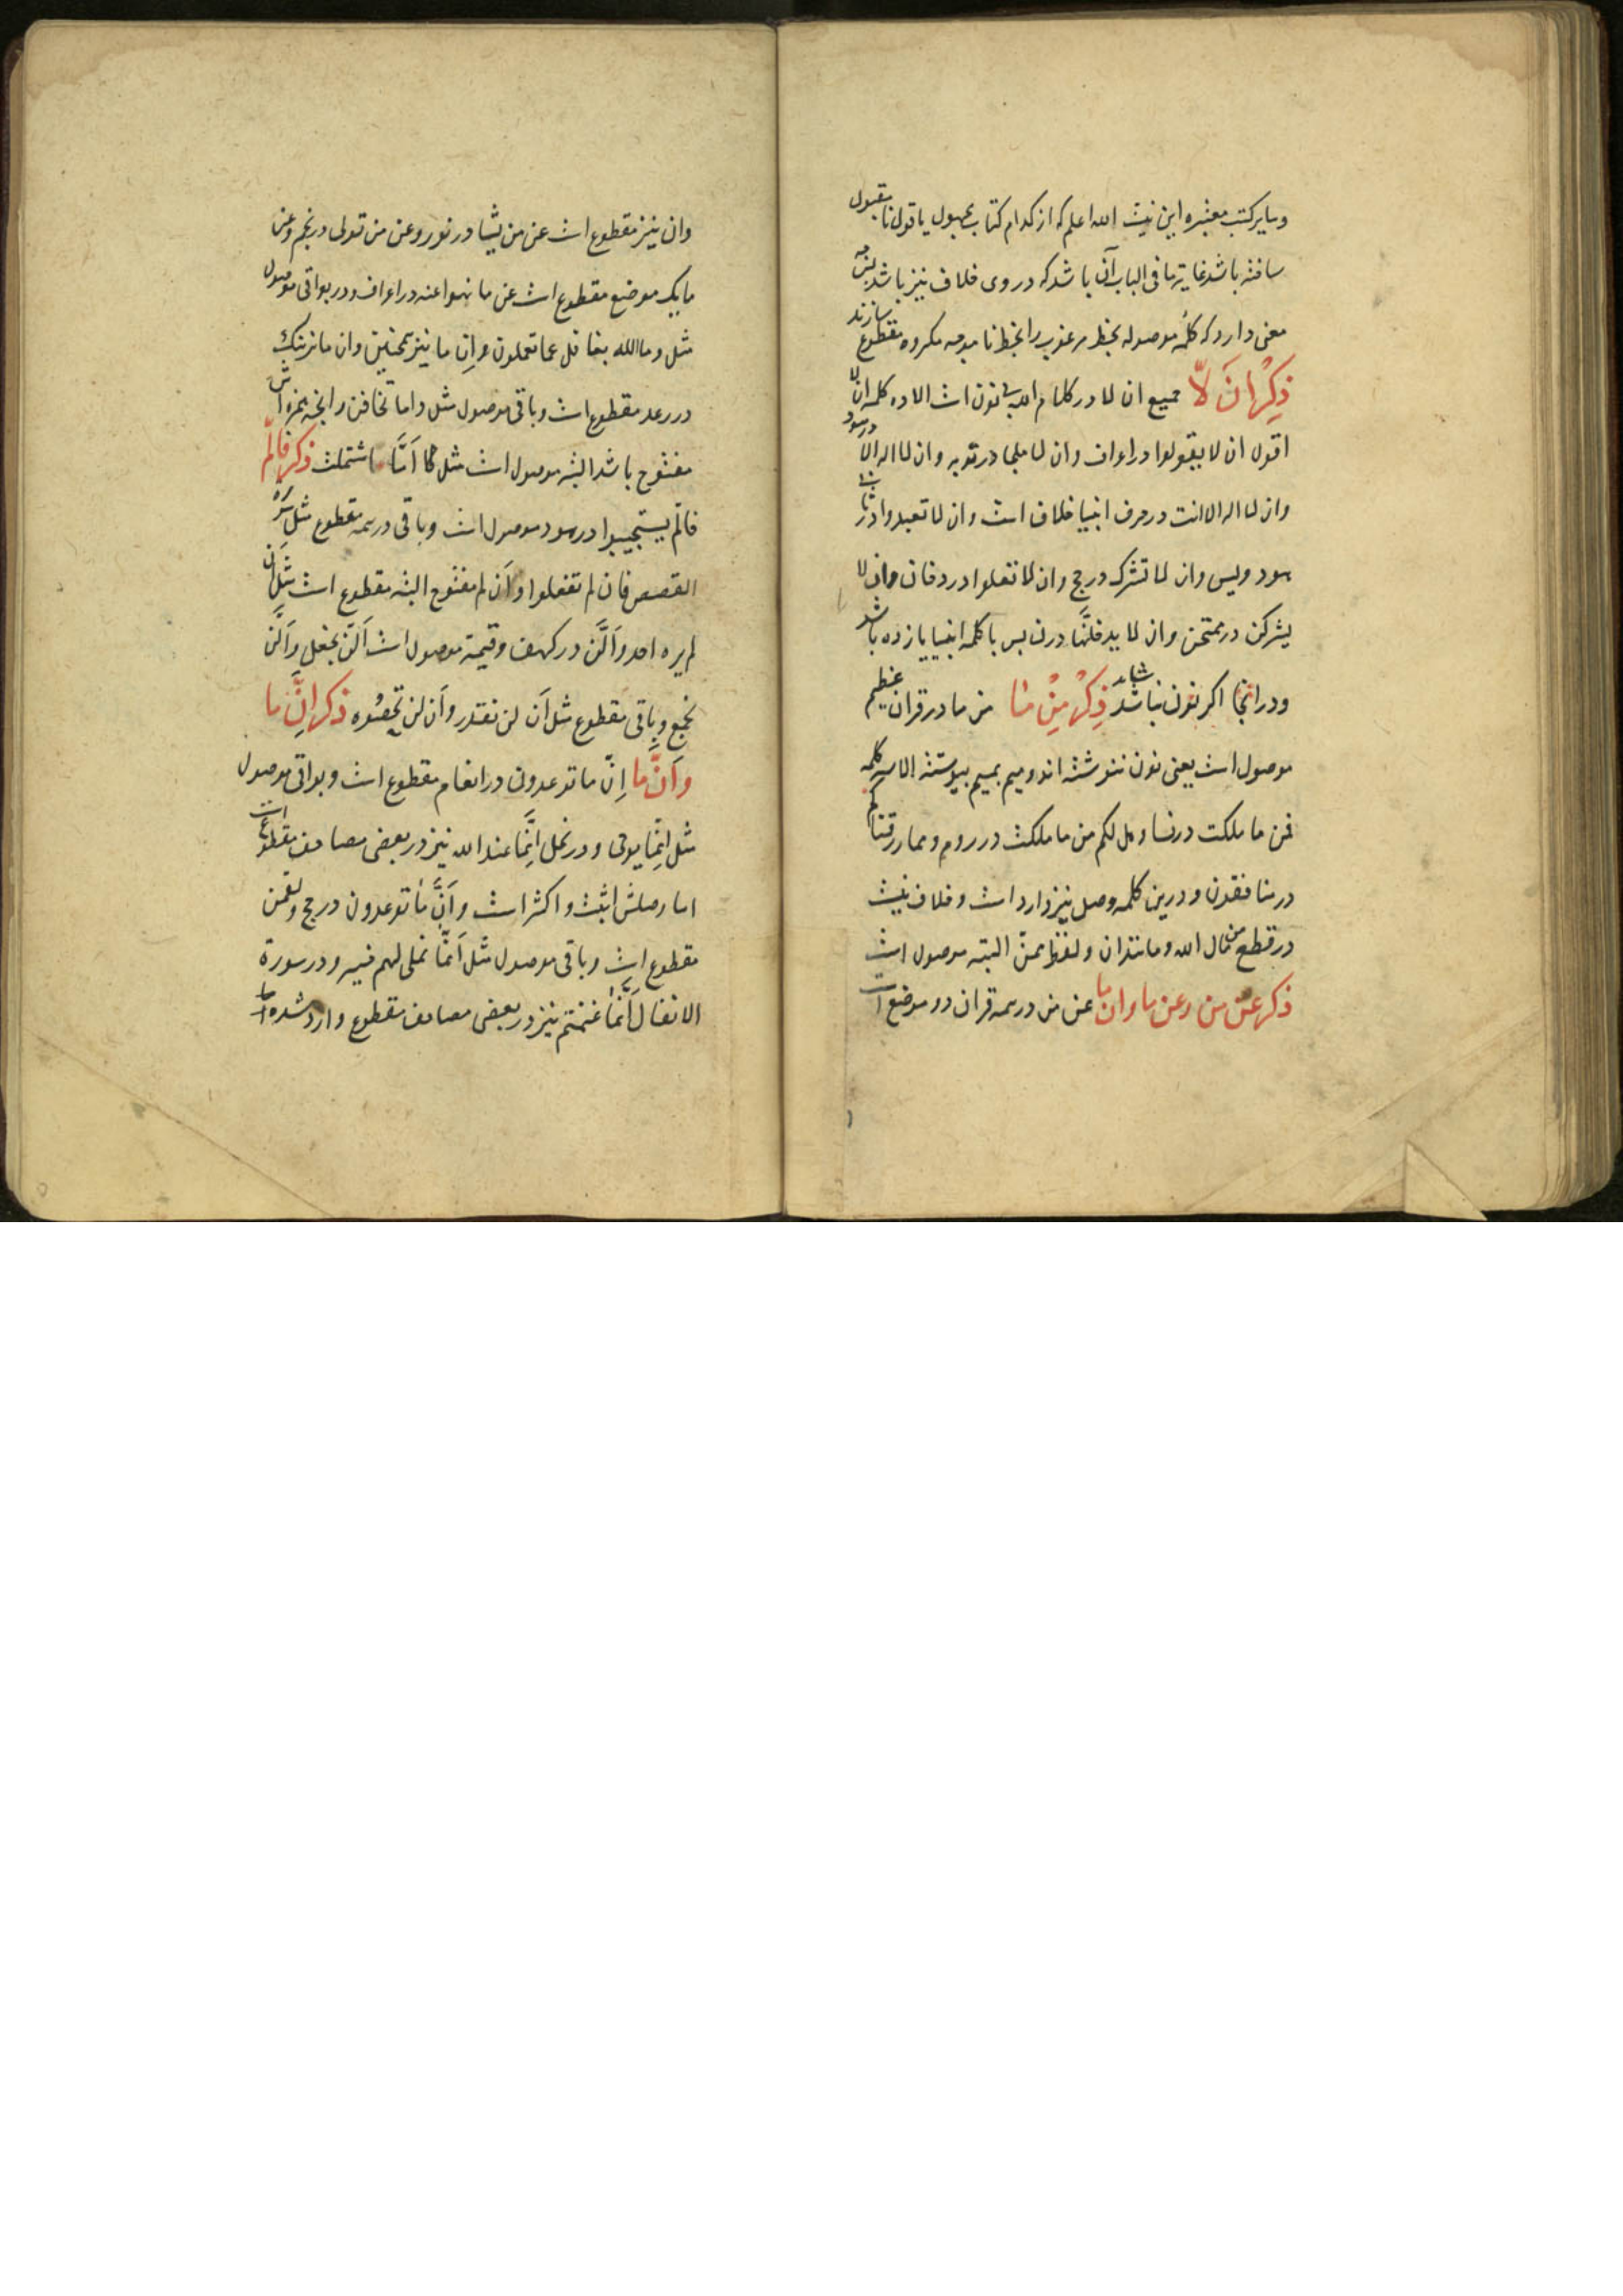 وسایر کتب معتبره این نیست الله اعلم که از کدام کتاب مجهول یا قول نا مقبول
باشد غایة ما فی الباب آن باشد که در وی خلاف نیز باشد
معنی دارد که کلمهٔ موصوله بخط مرغوب را بخط نا موجه مکروه مقطوع سازند
ذکر ان لا جمیع ان لا در کلام الله بی نون است الا ده کلمه ان لا
اقول ان لا یقولوا در اعراف وان لا ملجا در توبه وان لا اله الا در هود
وان لا اله الا انت در حرف انبیا خلاف است وان لا تعبدوا در
هود ویس وان لا تشرک در حج وان لا تعلوا در دخان وان لا
یشرکن در ممتحن وان لا یدخلنها در ن پس با کلمه انبیا یازده باشد
ودر انجا اکر نون نباشد شاید ذکر من ما من ما در قران عظیم
موصول است یعنی نون ننوشته اند ومیم بمیم پیوسته الا سه کلمه
فمن ما ملکت در نسا وهل لکم من ما ملکت در روم ومما رزقناکم
در منافقون و درین کلمه وصل نیز وارد است و خلاف نیست
در قطع من مال الله ومانند ان ولفظ ممن البته موصول است
ذکر عن من وعن ما وان ما عن من در همه قران دو موضع است
وان نیز مقطوع است عن من یشا در نور وعن من تولی در نجم وعن
ما یک موضع مقطوع است عن ما نهوا عنه در اعراف ودر بواقی موصول
مثل وما الله بغافل عما تعملون وان ما نیز همچنین وان ما نرینک
در رعد مقطوع است وباقی موصول مثل واما تخافن وانچه همزه اش
مفتوح باشد البته موصول است مثل اما اشتملت ذکر فالم
فالم یستجیبوا در هود موصول است وباقی در همه مقطوع مثل
القصص فان لم تفعلوا وان لم مفتوح البته مقطوع است مثل ان
لم یره احد والن در کهف وقیمة موصول است الن نجعل والن
نجمع وباقی مقطوع مثل ان لن نقدر وان لن تحصوه ذکر ان ما
وان ما ان ما توعدون در انعام مقطوع است وبواقی موصول
مثل انما یوحی ودر نحل انما عند الله نیز در بعضی مصاحف مقطوع است
اما وصلش اثبت واکثر است وان ما توعدون در حج ولقمن
مقطوع است وباقی موصول مثل انما نملی لهم خیر ودر سورة
الانفال انما غنمتم نیز در بعضی مصاحف مقطوع وارد شده